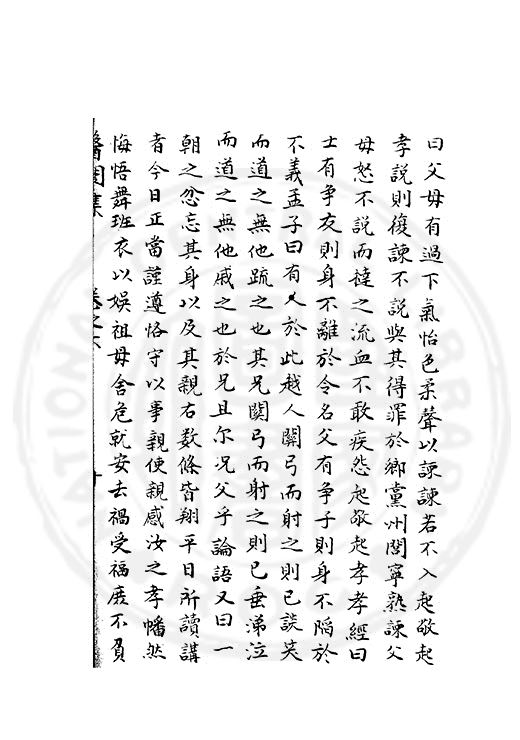 曰父母有過下氣怡色柔聲以諫諫若不入起敬起
孝說則復諫不說與其得罪於鄉黨州閭寧熟諫父
母怒不說而撻之流血不敢疾怨起敬起孝孝經曰
士有争友則身不離於令名父有争子則身不陷於
不義孟子曰有人於此越人關弓而射之則已談笑
而道之無他疏之也其兄関弓而射之則已垂涕泣
而道之無他戚之也於兄且尔况父乎論語又曰一
朝之忿忘其身以及其親右数條皆翔平日所讀講
者今日正當謹遵恪守以事親使親感汝之孝幡然
悔悟舞班衣以娛祖母舍危就安去禍受福庶不負